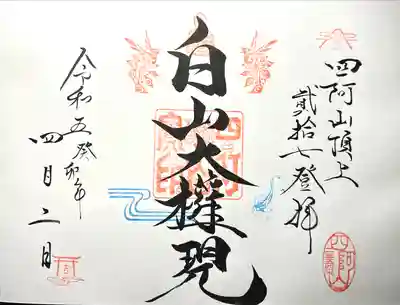 四阿山頂上
貮拾七登拝
白山大権現
令和五癸卯年
四月二日